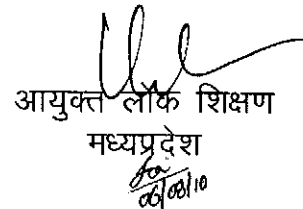 आयुक्त लोक शिक्षण
मध्यप्रदेश
06/08/10